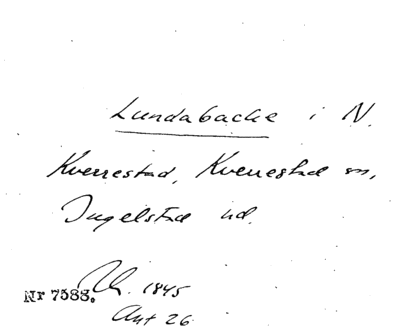 Lundabacke i N.
Kverrestad, Kverrestad sn,
Ingelstad hd.
Rh. 1845
Nr 7588.
Akt 26